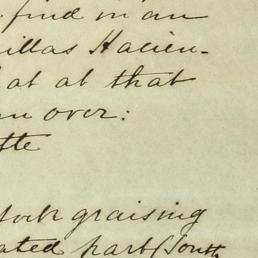 find in an
illas Hacien-
at at that
n over:
tte
tock graising
ated part (South